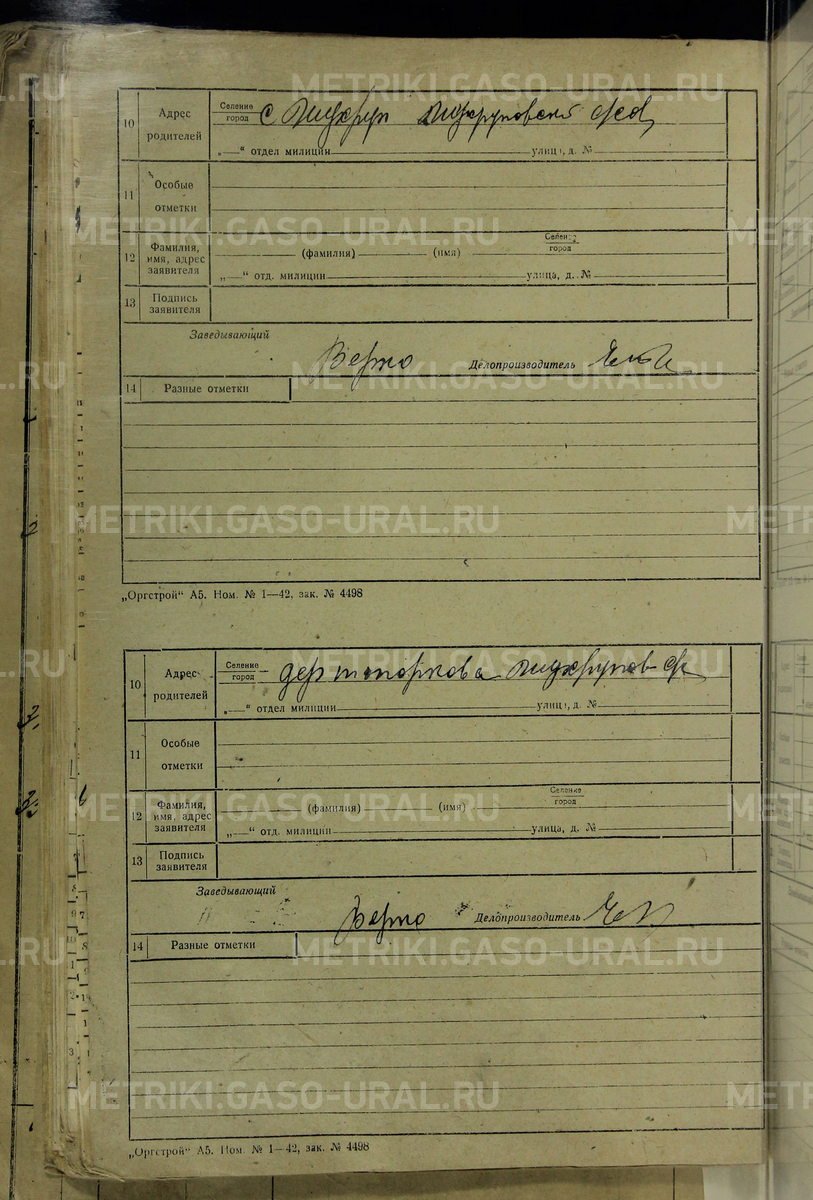 METRIKI.GASO-URAL.RU
10 Адрес родителей Селение город с
„—“ отдел милиции улица, д. №
11 Особые отметки
12 Фамилия, имя, адрес заявителя (фамилия) (имя) Селение город
„—“ отд. милиции улица, д. №
13 Подпись заявителя
Заведывающий
Верно Делопроизводитель
14 Разные отметки
METRIKI.GASO-URAL.RU
„Оргстрой“ А5. Ном. № 1—42, зак. № 4498
10 Адрес родителей Селение город дер топоркова
„—“ отдел милиции улица, д. №
11 Особые отметки
12 Фамилия, имя, адрес заявителя (фамилия) (имя) Селение город
„—“ отд. милиции улица, д. №
13 Подпись заявителя
Заведывающий
Верно Делопроизводитель
14 Разные отметки
METRIKI.GASO-URAL.RU
„Оргстрой“ А5. Ном. № 1—42, зак. № 4498